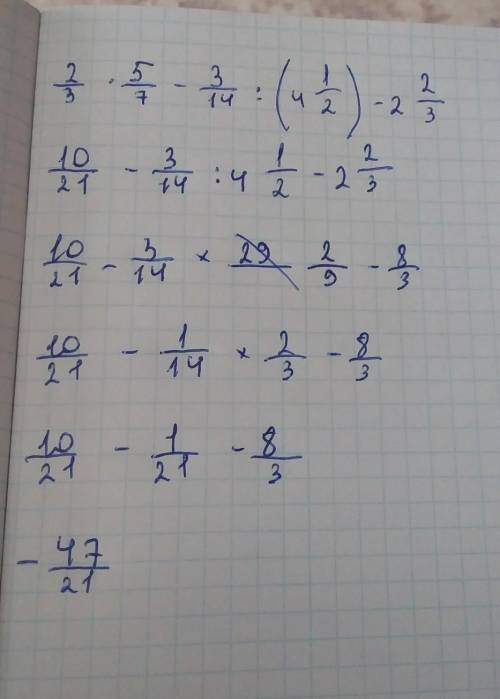 2/3 · 5/7 - 3/14 : (4 1/2) - 2 2/3
10/21 - 3/14 : 4 1/2 - 2 2/3
10/21 - 3/14 × 2/9 - 8/3
10/21 - 1/14 × 2/3 - 8/3
10/21 - 1/21 - 8/3
- 47/21